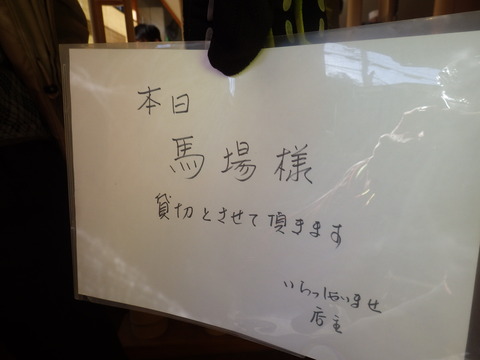 本日
馬場様
貸切とさせて頂きます
いらっしゃいませ
店主